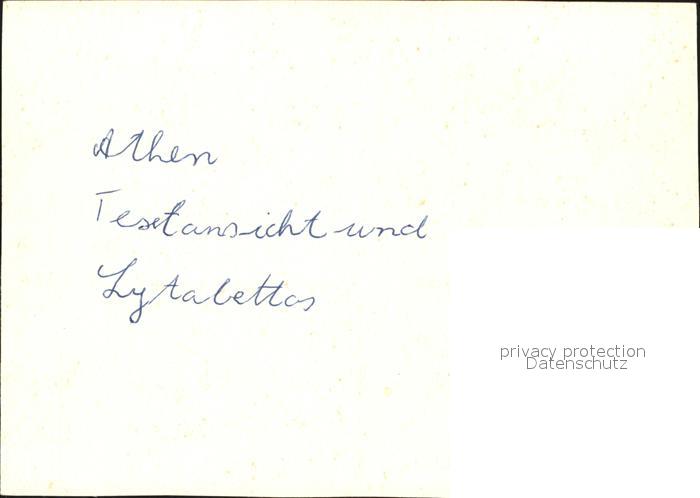 Athen
Testansicht und
Lytabettos
privacy protection
Datenschutz